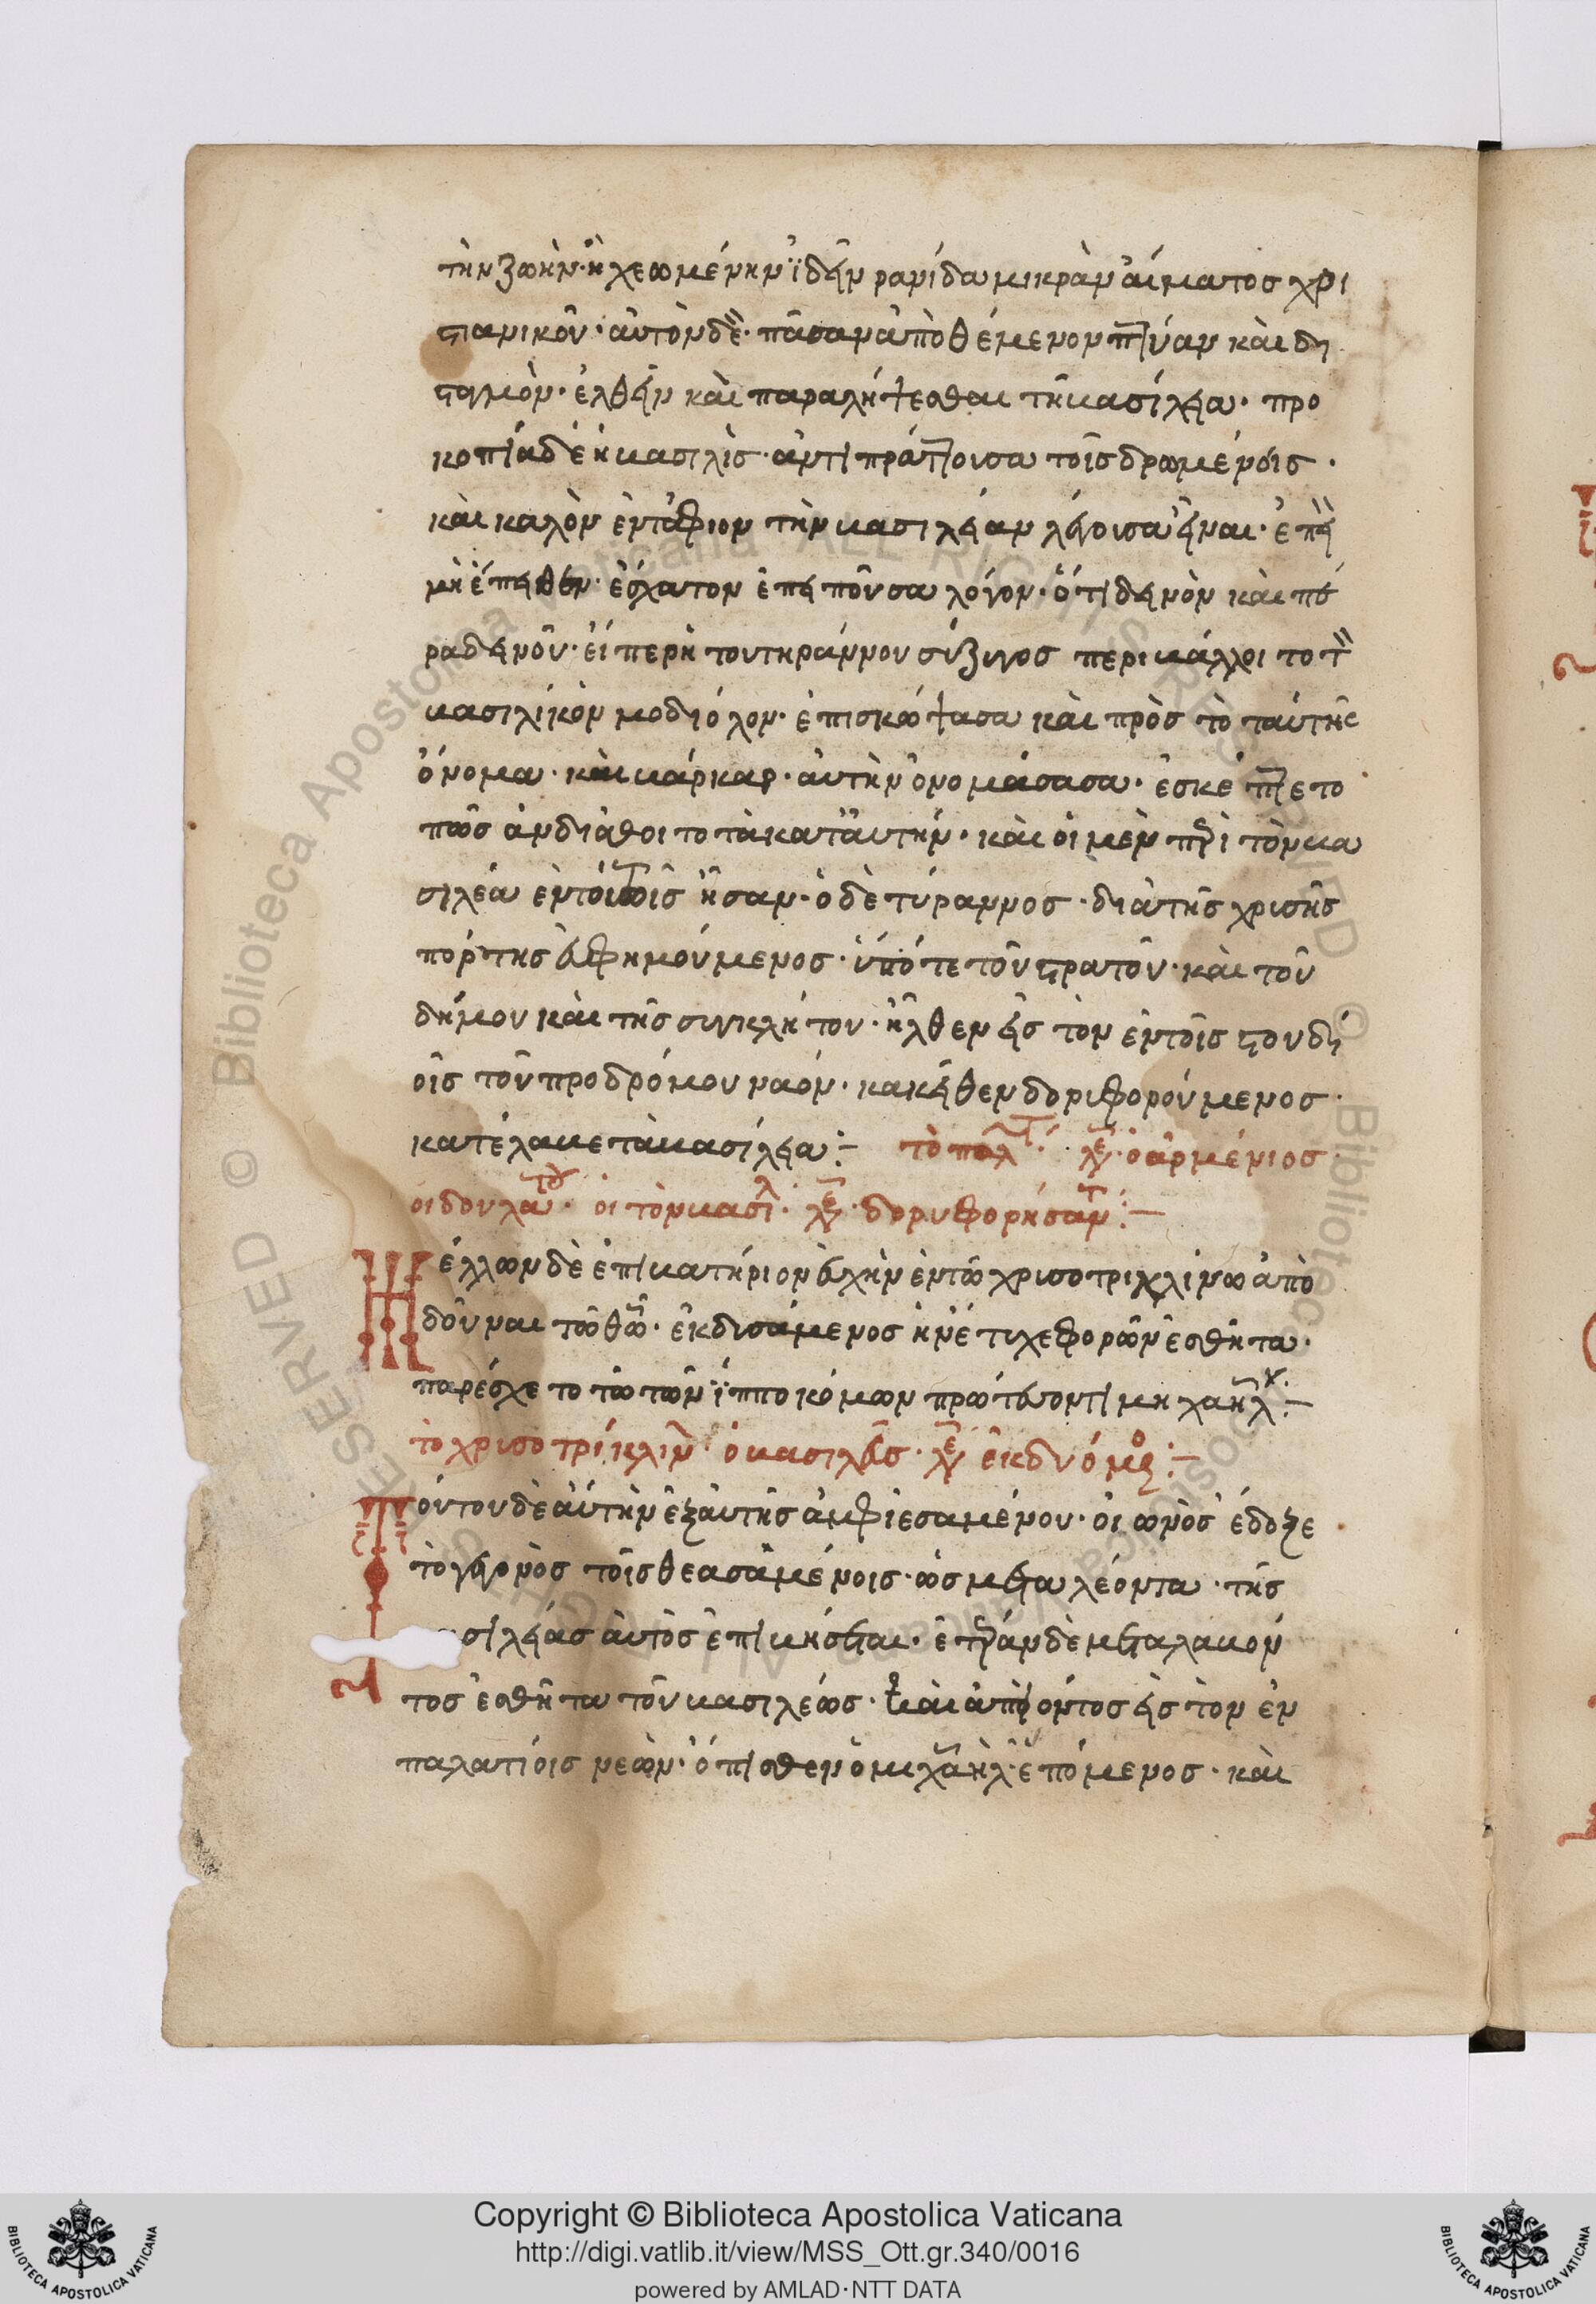 τὴν ζωὴν· ἢ χεωμένην ἰδεῖν ρανίδα μικρὰν αἵματοσ χρι
στιανικοῦ· αὐτὸν δὲ· πᾶσαν ἀποθέμενον πτύαν καὶ δι
σταγμὸν· ἐλθεῖν καὶ παραλήψεσθαι τῆ βασίλεια· προ
κοπία δὲ ἡ βασιλὶς· ἀντιπράττουσα τοῖς δρωμένοις·
καὶ καλὸν ἐντάφιον τὴν βασιλείαν λέγουσα εἶναι· ἐπεὶ
μὴ ἔπειθεν· ἔσχατον ἐπειποῦσα λόγον· ὅτι δεινὸν καὶ πέ
ρα δεινοῦ· εἴπερ ἡ του τηράννου σύζυγοσ περιβάλλοιτο τ
βασιλικὸν μοδιόλον· ἐπισκώψασα καὶ πρὸσ τὸ ταύτης
ὄνομα· καὶ βάρκαν· αὐτὴν ὀνομάσασα· ἐσκέπτετο
πῶσ ἂν διάθοιτο τὰ κατ' αὐτήν· καὶ οἱ μὲν περὶ τὸν βα
σιλέα ἐν τούτοις ἦσαν· ὁ δὲ τύραννοσ· διὰ τῆς χρυσῆς
πόρτης εὐφημούμενοσ· ὑπό τε τοῦ στρατοῦ· καὶ τοῦ
δήμου καὶ τῆς συγκλήτου· ἦλθεν εἰς τὸν ἐν τοῖς στουδί
οις τοῦ προδρόμου ναόν· κακεῖθεν δοριφορούμενοσ·
κατέλαβε τὰ βασίλεια:– τὸ παλτ· λέ· ὁ ἀρμένιοσ·
οἱ δουλωτ· οἱ τὸν βασιλ· λέ· δορυφορήσαντ:–
Μέλλων δὲ ἐπιβατήριον εὐχὴν ἐν τῶ χρυσοτρικλίνω ἀπο
δοῦναι τῶ θῶ· ἐκδυσάμενοσ ἣν ἔτυχε φορῶν ἐσθῆτα·
παρέσχετο τῶ τῶν ἱπποκόμων πρωτεύοντι μιχαήλ:–
τὸ χρυσοτρίκλιν· ὁ βασιλεὺς· λέ ἐκδυόμ:–
Τούτου δὲ αὐτὴν ἐξαυτῆς ἀμφιεσαμένου· οἰωνὸσ ἔδοξε
τὸ γεγονὸσ τοῖς θεασαμένοις· ὡσ μετα λέοντα· τῆς
βασιλείας αὐτὸσ ἐπιβήσεται· ἑτέραν δὲ μεταλαβόν
τοσ ἐσθῆτα τοῦ βασιλέωσ· καὶ ἀπιόντοσ εἰς τὸν ἐν
παλατίοις νεὼν· ὄπισθεν ὁ μιχαὴλ ἑπόμενοσ· καὶ
Copyright © Biblioteca Apostolica Vaticana
http://digi.vatlib.it/view/MSS_Ott.gr.340/0016
powered by AMLAD·NTT DATA